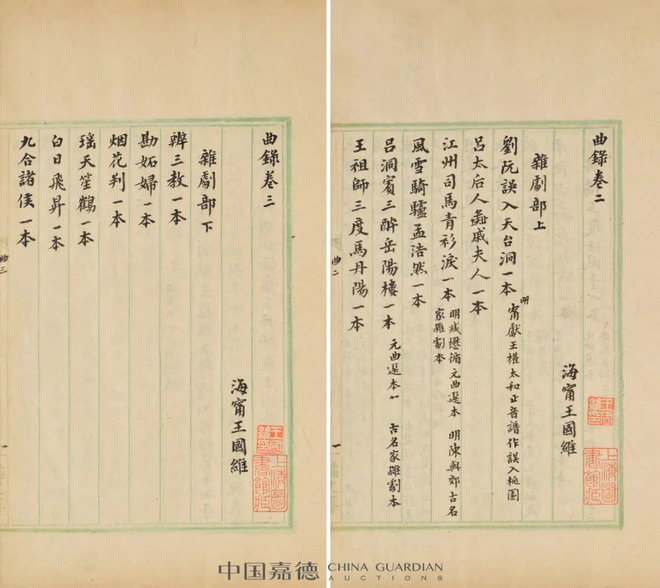 曲錄卷二
海甯王國維
雜劇部上
劉阮誤入天台洞一本
明甯獻王權太和正音譜作誤入桃園
呂太后人彘戚夫人一本
江州司馬青衫淚一本
明臧懋循元曲選本 明陳與郊古名
家雜劇本
風雪騎驢孟浩然一本
呂洞賓三醉岳陽樓一本
元曲選本 古名家雜劇本
王祖師三度馬丹陽一本
曲二
一
曲錄卷三
海甯王國維
雜劇部下
辨三教一本
勘妬婦一本
烟花判一本
瑶天笙鶴一本
白日飛昇一本
九合諸侯一本
曲三
中国嘉德 CHINA GUARDIAN
AUCTIONS